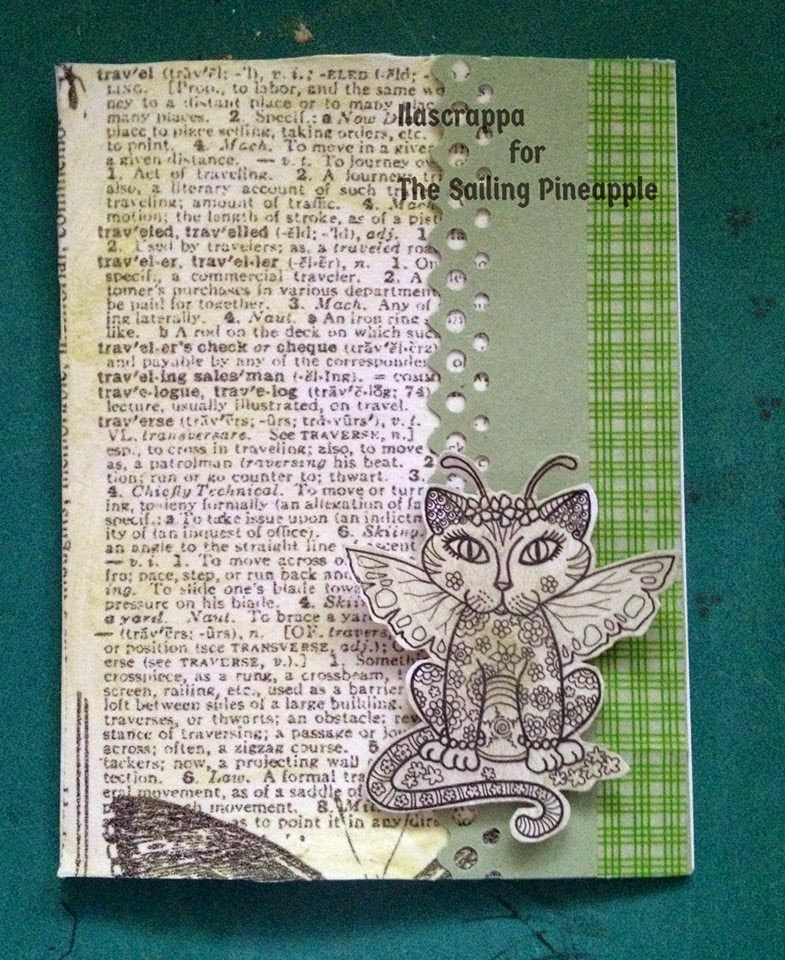 trav'el (trăv'ĕl; -'l), v. i.; -ELED (-ĕld; -
[Prop., to labor, and the same
ney to a distant place or to many
many places. 2. Specif.: a Now
place to place selling, taking orders, etc.
to point. 4. Mach. To move in a given
a given distance. — v. t. To journey
1. Act of traveling. 2. A journey;
also, a literary account of such
traveling; amount of traffic. 4. Mach.
motion; the length of stroke, as of a
trav'eled, trav'elled (-ĕld; -'ld), adj. 1
2. Used by travelers; as, a traveled
trav'el-er, trav'el-ler (-ĕl-ẽr), n. 1.
specif., a commercial traveler. 2. A
tomer's purchases in various department
be paid for together. 3. Mach. Any of
ing laterally. 4. Naut. a An iron ring
like. b A rod on the deck on which
trav'el-er's check or cheque
and payable by any of the
trav'el-ing sales'man (-ĕl-ĭng). =
trav'e-logue, trav'e-log (trăv'ĕ-lŏg; 74)
lecture, usually illustrated, on travel.
trav'erse (trăv'ẽrs; -ûrs; trá-vûrs'), v. t.
VL. transversare. See TRAVERSE, n.]
esp., to cross in traveling; also, to move
as, a patrolman traversing his beat. 2
tion; run or go counter to; thwart. 3.
4. Chiefly Technical. To move or turn
ing, to deny formally (an allegation of
specif.: a To take issue upon (an
ity of (an inquest of office). 6. Skiing.
an angle to the straight line
— v. i. 1. To move across
fro; pace, step, or run back and
ing. To slide one's blade
pressure on his blade. 4.
a yard. Naut. To brace a
— (trăv'ẽrs; -ûrs), n. [OF. travers,
or position (see TRANSVERSE, adj.);
erse (see TRAVERSE, v.).] 1.
crosspiece, as a rung, a crossbeam,
screen, railing, etc., used as a barrier
loft between sides of a large building.
traverses, or thwarts; an obstacle;
stance of traversing; a passage or
across; often, a zigzag course. 5
tackers; now, a projecting wall
tection. 6. Law. A formal
eral movement, as of a saddle of
movement. 8.
as to point it in any
Ilascrappa
for
The Sailing Pineapple